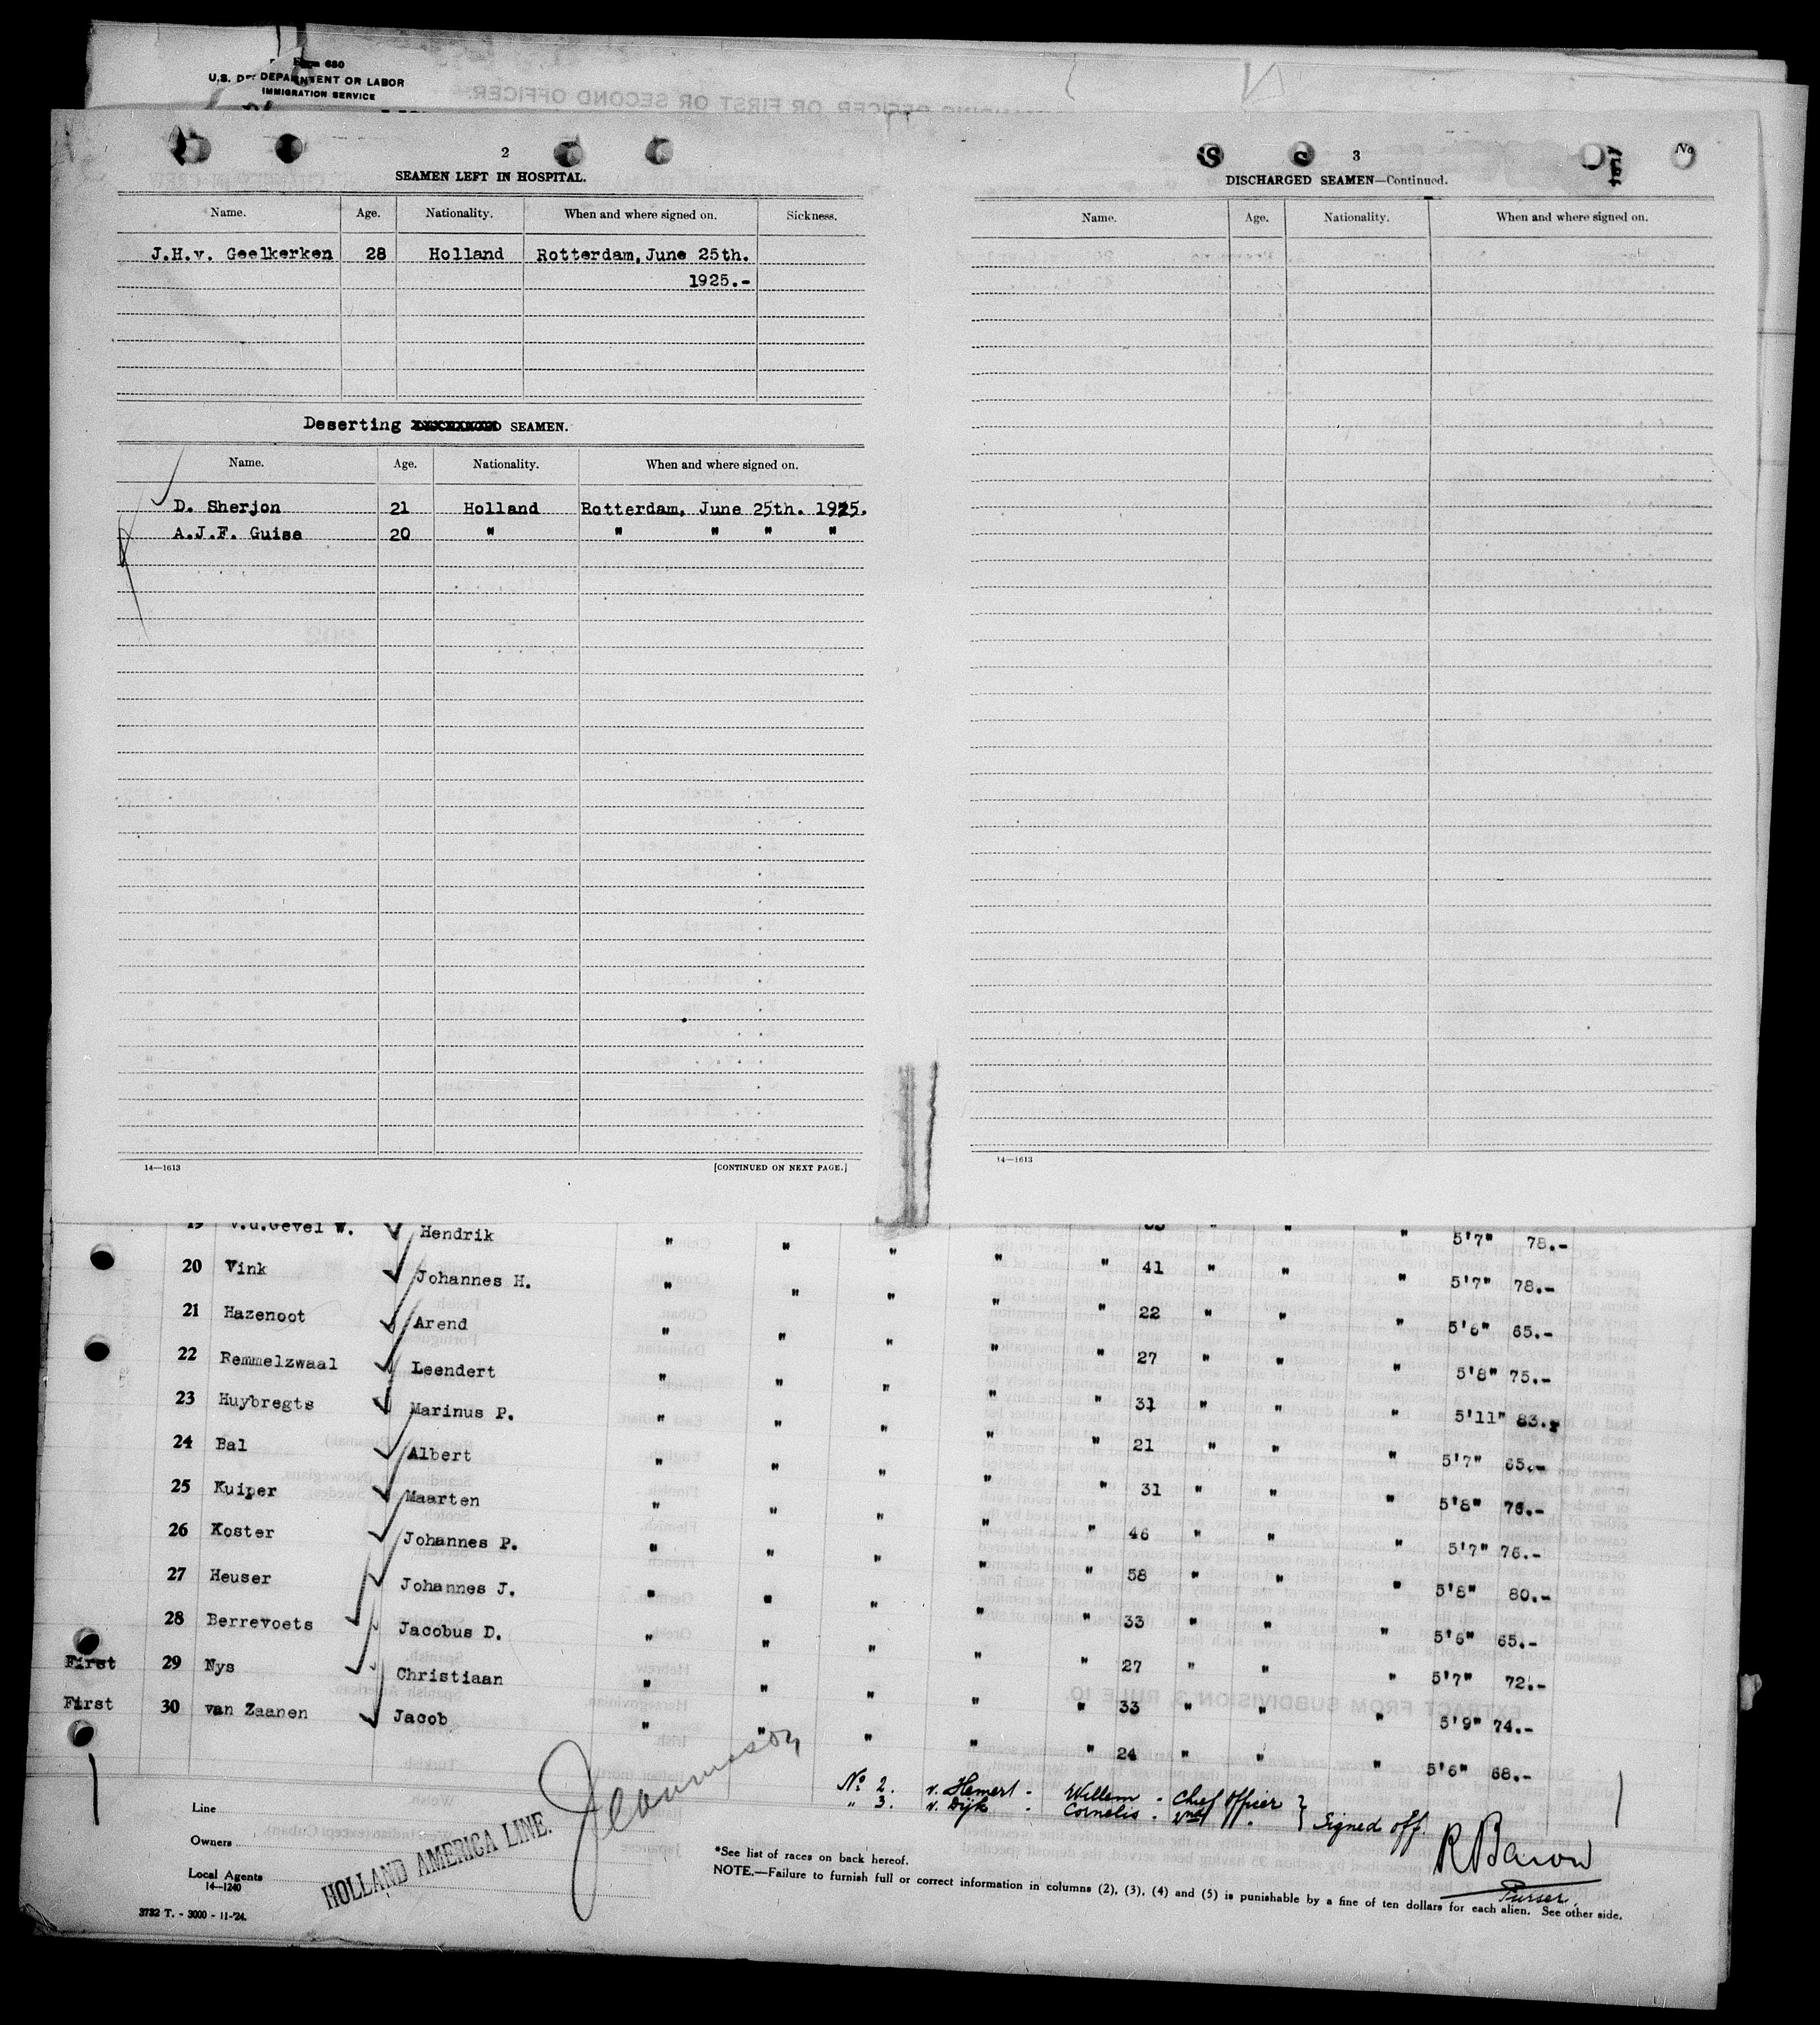 Form 680
U.S. DEPARTMENT OR LABOR
IMMIGRATION SERVICE
2
SEAMEN LEFT IN HOSPITAL.
Name. Age. Nationality. When and where signed on. Sickness.
J.H.v. Geelkerken 28 Holland Rotterdam, June 25th.
1925.-
Deserting SEAMEN.
Name. Age. Nationality. When and where signed on.
D. Sherjon 21 Holland Rotterdam, June 25th. 1925.
A.J.F. Guise 20 " " " " "
14—1613 [CONTINUED ON NEXT PAGE.]
S S 3 No
DISCHARGED SEAMEN—Continued.
Name. Age. Nationality. When and where signed on.
14—1613
19 v.d.Gevel W. Hendrik " " " " " " 5'7" 78.-
20 Vink Johannes H. " " " " " 41 " " " 5'7" 78.-
21 Hazenoot Arend " " " " " 22 " " " 5'6" 65.-
22 Remmelzwaal Leendert " " " " " 27 " " " 5'8" 75.-
23 Huybregts Marinus P. " " " " " 31 " " " 5'11" 83.-
24 Bal Albert " " " " " 21 " " " 5'7" 65.-
25 Kuiper Maarten " " " " " 31 " " " 5'8" 76.-
26 Koster Johannes P. " " " " " 46 " " " 5'7" 76.-
27 Heuser Johannes J. " " " " " 58 " " " 5'8" 80.-
28 Berrevoets Jacobus D. " " " " " 33 " " " 5'6" 65.-
First 29 Nys Christiaan " " " " " 27 " " " 5'7" 72.-
First 30 van Zaanen Jacob " " " " " 33 " " " 5'9" 74.-
" 24 " " " 5'6" 68.-
No. 2. v. Hemert - Willem - Chief Officer
" 3. v. Dijk - Cornelis - 2nd " } Signed off.
R Baron
Purser.
Line
Owners
Local Agents
14—1240
HOLLAND AMERICA LINE.
*See list of races on back hereof.
NOTE.—Failure to furnish full or correct information in columns (2), (3), (4) and (5) is punishable by a fine of ten dollars for each alien. See other side.
3732 T. - 3000 - 11-'24.